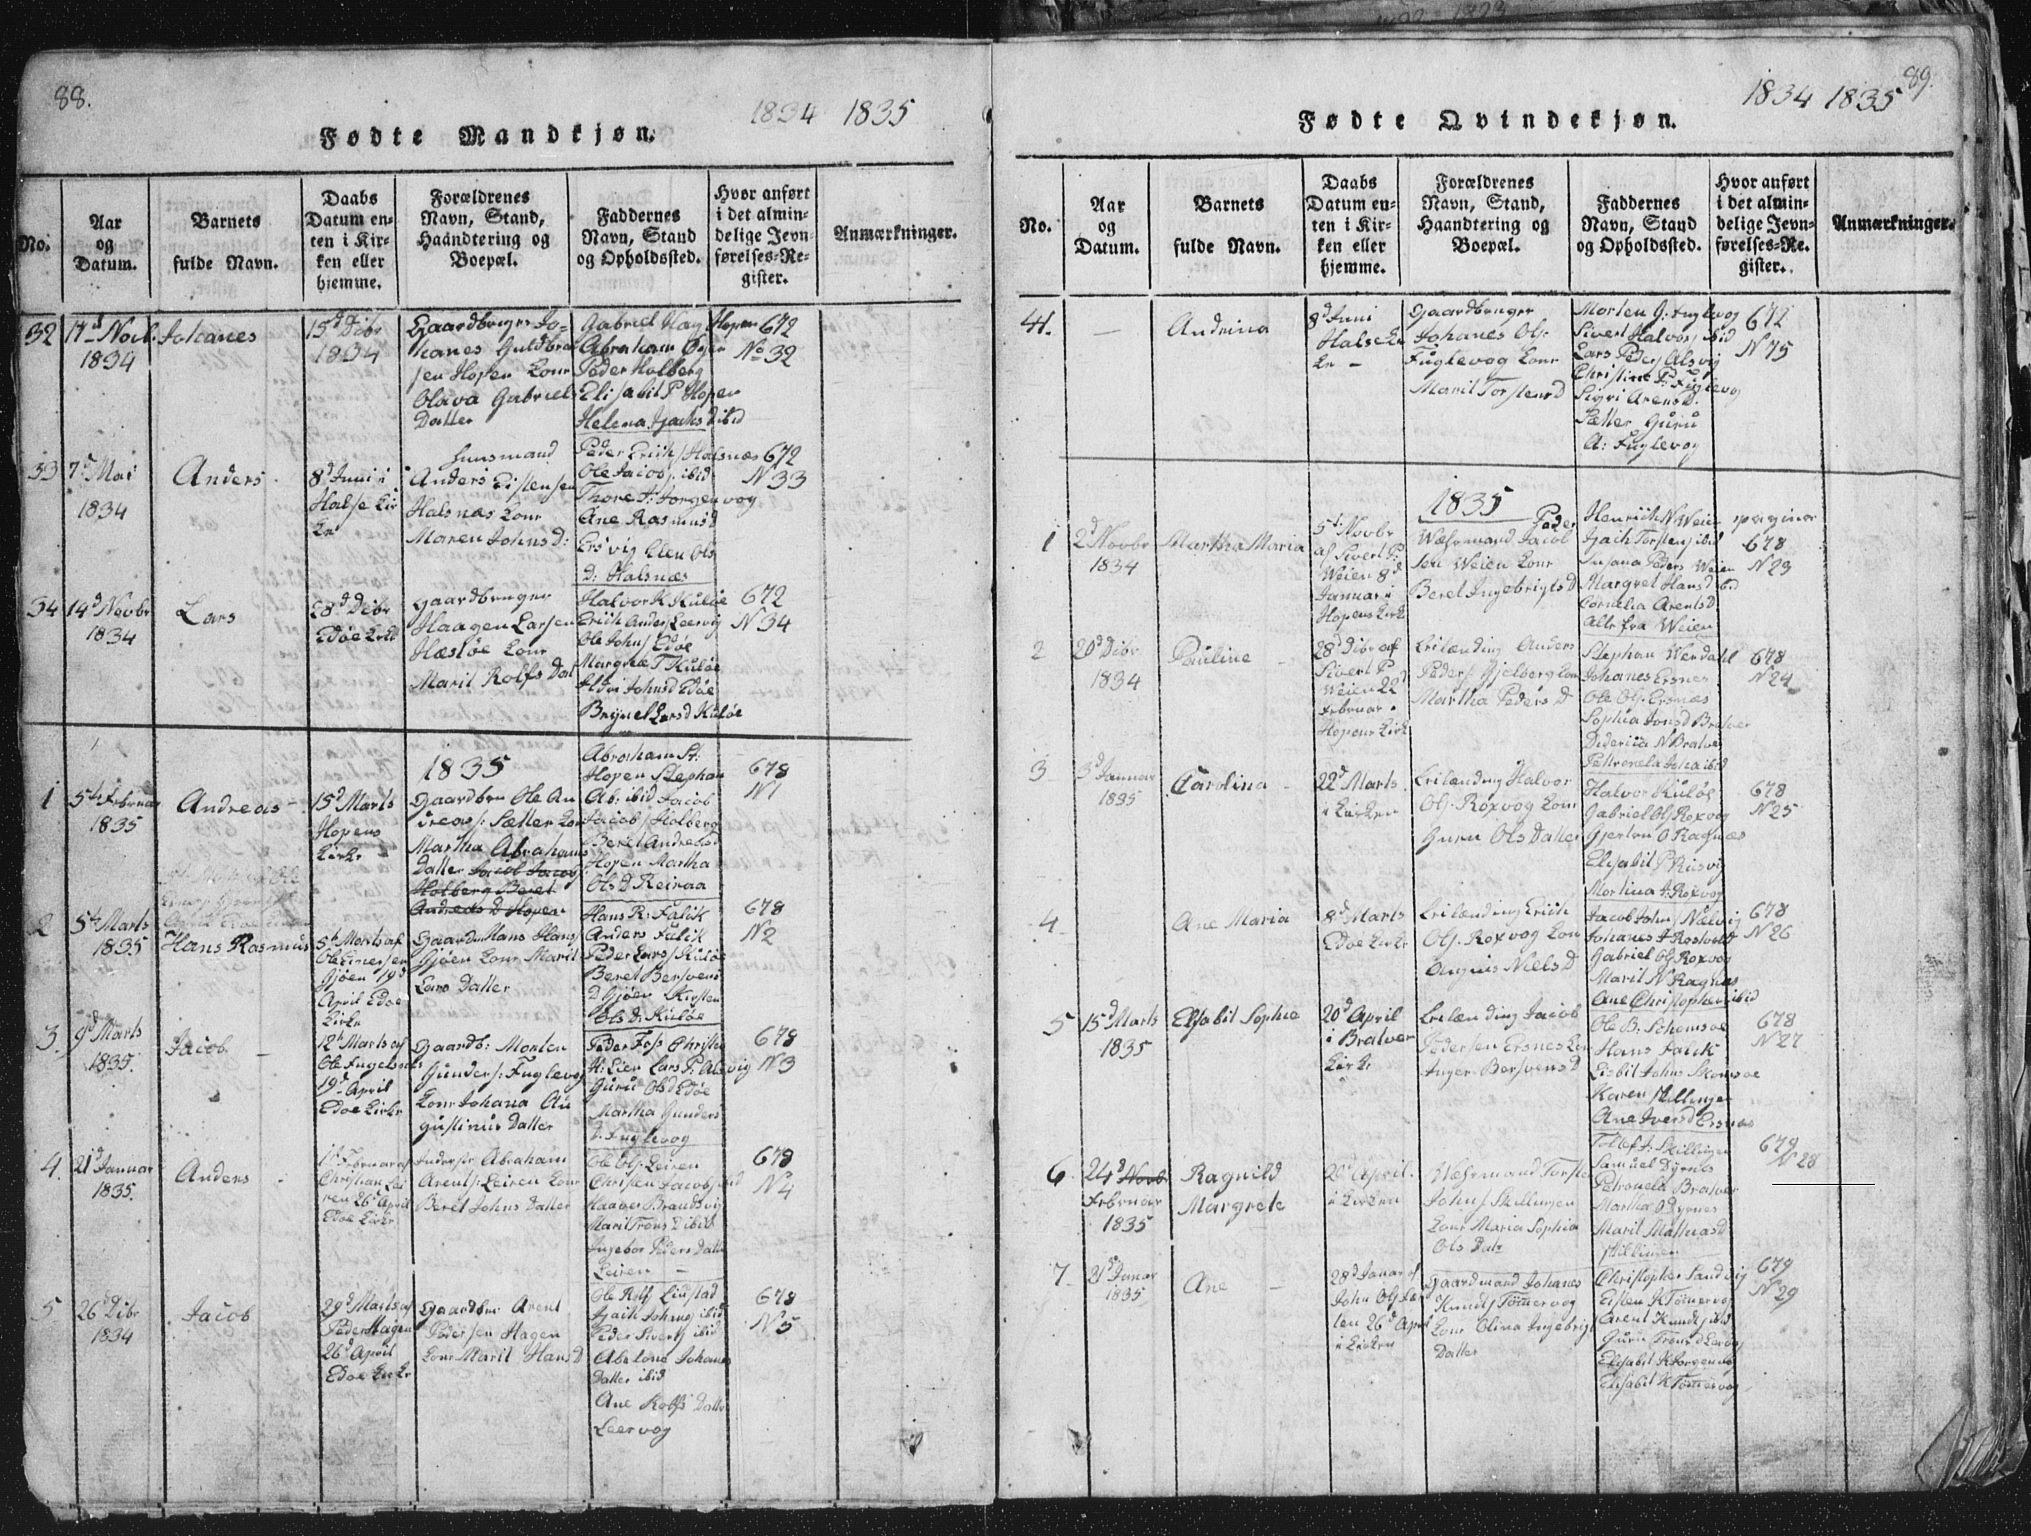 88.
1834 1835
Fødte Mandkjøn.
No.
Aar
og
Datum.
Barnets
fulde Navn.
Daabs
Datum en-
ten i Kir-
ken eller
hjemme.
Forældrenes
Navn, Stand,
Haandtering og
Boepæl.
Faddernes
Navn, Stand
og Opholdssted.
Hvor anført
i det almin-
delige Jevn-
førelses-Re-
gister.
Anmærkninger.
32
17d Novb.
1834
Johanes
15d Dcbr
1834
Gaardbruger Jo-
hanes Guldbra
sen Hopen Konr
Olava Gabriels
Datter
Gabriel Hag Hopen
Abraham
Peder Holberg
Elisabit P Hopen
Helena Jachs D ibid
672
No 32
33
7d Mai
1834
Anders
8d Juni i
Halse Kir
ke
Huusmand
Anders Eistensen
Halsnæs Konr
Maren Johns D:
Peder Erich/ Halsnæs
Ole Jacobs/ ibid
Thore A: Jorgenvog
Ane Rasmus D
Ersvig Elen Ols
D: Halsnæs
672
N 33
34
14d Novbr
1834
Lars
28d Dcbr
Edøe Kirke
Gaardbruger
Haagen Larsen
Hæstøe Konr
Marit Rolfs Dat
Halvor K Kuløe
Erich Anders/ Leervig
Ole Johns/ Edøe
Margreta T Kuløe
Johns D Edøe
Lars D Kuløe
672
N 34
1835
1
5d Februar
1835
Andreas
15d Marts
Hopens
Kirke
Gaardbru Ole An
dreas/: Sætter Kon
Martha Abrahams
Datter Jacob Jacob
Holberg Beret
Andreas D Hopen
Abraham St:
Hopen Stephan
Ab: ibid Jacob
Jacob/ Holberg
Beret Andreas D
Hopen Martha
Ols D Reiraa
678
N 1
2
5d Marts
1835
Hans Rasmus
5d Marts af
Ole Einersen
Gjøen 19d
April Edøe
Kirke
Gaardm Hans Hans/
Gjøen Konr Marit
Lars Datter
Hans R: Falik
Anders Falik
Peder Lars/ Kuløe
Beret Bersvens
D Gjøen Kirsten
Ols D: Kuløe
678
N 2
3.
9d Marts
1835.
Jacob
12d Marts af
Ole
19d April
Edøe Kirke
Gaardb: Morten
Gunders/: Fuglevog
Konr Johana Au
gustinus Datter
Peder Foss Christen
H: Lier Lars P: Alsvig
Guru Ols D Edøe
Martha Gunders
D. Fuglevog
678
N 3
4.
21d Januar
1835.
Anders
1d Februar af
Christian Lei
ren 26d April
Edøe Kirke
Abraham
Arents/: Leiren Konr
Beret Johns Datter
Ole Ols/ Leiren
Christen Jacobs/ ibid
Haaver Brandsvig
Marit Trons D ibid
Ingebor Peders Datter
Leiren
678
N 4
5
26d Dcbr
1834
Jacob
29d Marts af
Peder Hagen
26d April
Edøe Kirke
Gaardbr Arent
Pedersen Hagen
Konr Marit Hans D
Ole Rolfs/
Johns/ ibid
Peder Siverts/ ibid
Abelone Johanes
Datter ibid
Ane Rolfs Datter
Leervog
678
N 5
89.
1834 1835
Fødte Qvindekjøn.
No.
Aar
og
Datum.
Barnets
fulde Navn.
Daabs
Datum en-
ten i Kir-
ken eller
hjemme.
Forældrenes
Navn, Stand,
Haandtering og
Boepæl.
Faddernes
Navn, Stand
og Opholdssted.
Hvor anført
i det almin-
delige Jevn-
førelses-Re-
gister.
Anmærkninger.
41.
Andrina
8d Juni
Halse Kir
ke
Gaardbruger
Johanes Ols/
Fuglevog Konr
Marit Torstens D
Morten G: Fuglevog
Sivert Halvors/ ibid
Lars Peders/ Alsvig
Christine P: Fuglevog
Sigri Arens D.
Sætter Guru
A: Fuglevog
672
N 75
1835
1
2d Novbr
1834
Martha Maria
5d Novbr
af Sivert P:
Weien 8d
Januar i
Hopens Kirke
Wæhrmand Jacob Peder
sen Weien Konr
Beret Ingebrigts D
Henrich N Weien
Torstens/ ibid
Susana Peders Weien
Margret Hans D ibid
Cornelia Arents D
Alle fra Weien
pagina
678
N 23
2
20d Dcbr
1834
Pauline
28d Dcbr af
Sivert P
Weien 22d
Februar i
Hopens Kirke
Leilænding Anders
Peders/ Gjelberg Konr
Martha Peders D
Stephan Werdahl
Johanes Ersnes
Ole Ols/ Ersnes
Sophia Jons D Bratver
Didericia N Bratvær
Petronela ibid
678
N 24
3
3d Januar
1835
Carolina
22d Marts
i Kirken
Leilænding Halvor
Ols/ Roxvog Konr
Guru Ols Datter
Halvor Kuløe
Gabriel Ols/ Roxvog
Gjerton O Ragnæs
Elisabit P Risvig
Martina A: Roxvog
678
N 25
4
Ane Maria
8d Marts
Edøe Kirke
Leilænding Erich
Ols/. Roxvog Kon
Niels D
Jacob Johns/ Nælvig
Johanes A Rosvold
Gabriel Ols/ Roxvog
Marit N Ragnæs
Ane Christopher ibid
678
N 26
5
15d Marts
1835
Elsabit Sophia
20d April
i Bratver
Kirke
Leilænding Jacob
Pedersen Ersnes Kon
Inger Bersvens D
Ole B: Schomsøe
Hans Falik
Lisbit Johns Skomsøe
Karen Skillingen
Ane Ivers D Ersnæs
678
N 27
6
24d Novb
Februar
1835
Ragnild
Margrete
20d April
i Kirken
Wæhrmand Torsten
Johns/ Skillingen
Konr Maria Sophia
Ols Datr
Tollef A: Skillingen
Samuel Dyrnes
Petronela Bratver
Martha O Dyrnes
Marit Mathias D
Skillingen
679
N 28
7
21d Januar
1835
Ane
28d Januar af
John Ols/
26d April
i Kirken
Gaardmand Johanes
Knuds/ Tømervog
Konr Olina Ingebrigt
Datter
Christopher Sandvig
Eisten K Tømervog
Arent Knuds/ ibid
Guru Trons D
Elisabit K
Elisabit K Tømervog
679
N 29